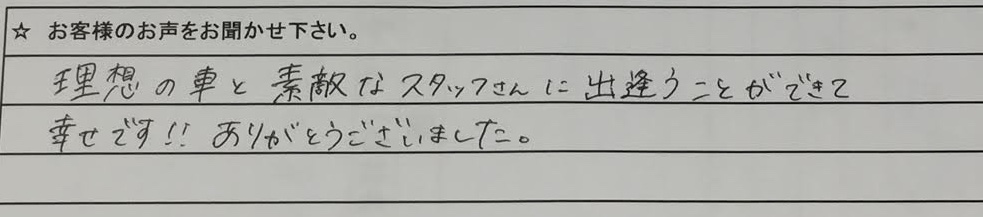 ☆ お客様のお声をお聞かせ下さい。
理想の車と素敵なスタッフさんに出逢うことができて
幸せです!! ありがとうございました。